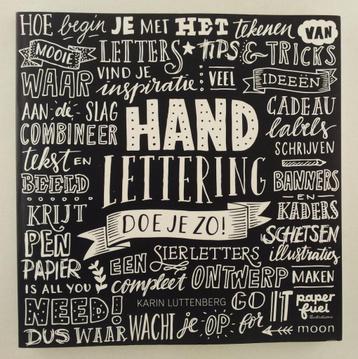 HOE begin JE MET HET tekenen VAN
MOOIE LETTERS ★ TIPS & TRICKS
WAAR VIND JE inspiratie: VEEL IDEEËN
AAN de SLAG CADEAU labels
COMBINEER HAND SCHRIJVEN
tekst EN BEELD LETTERING BANNERS EN KADERS
KRIJT DOE JE ZO! SCHETSEN
PEN SIERLETTERS illustraties
PAPIER EEN compleet ONTWERP MAKEN
IS ALL YOU NEED! KARIN LUTTENBERG GO IT paper fuel
DUS WAAR WACHT je OP - for moon